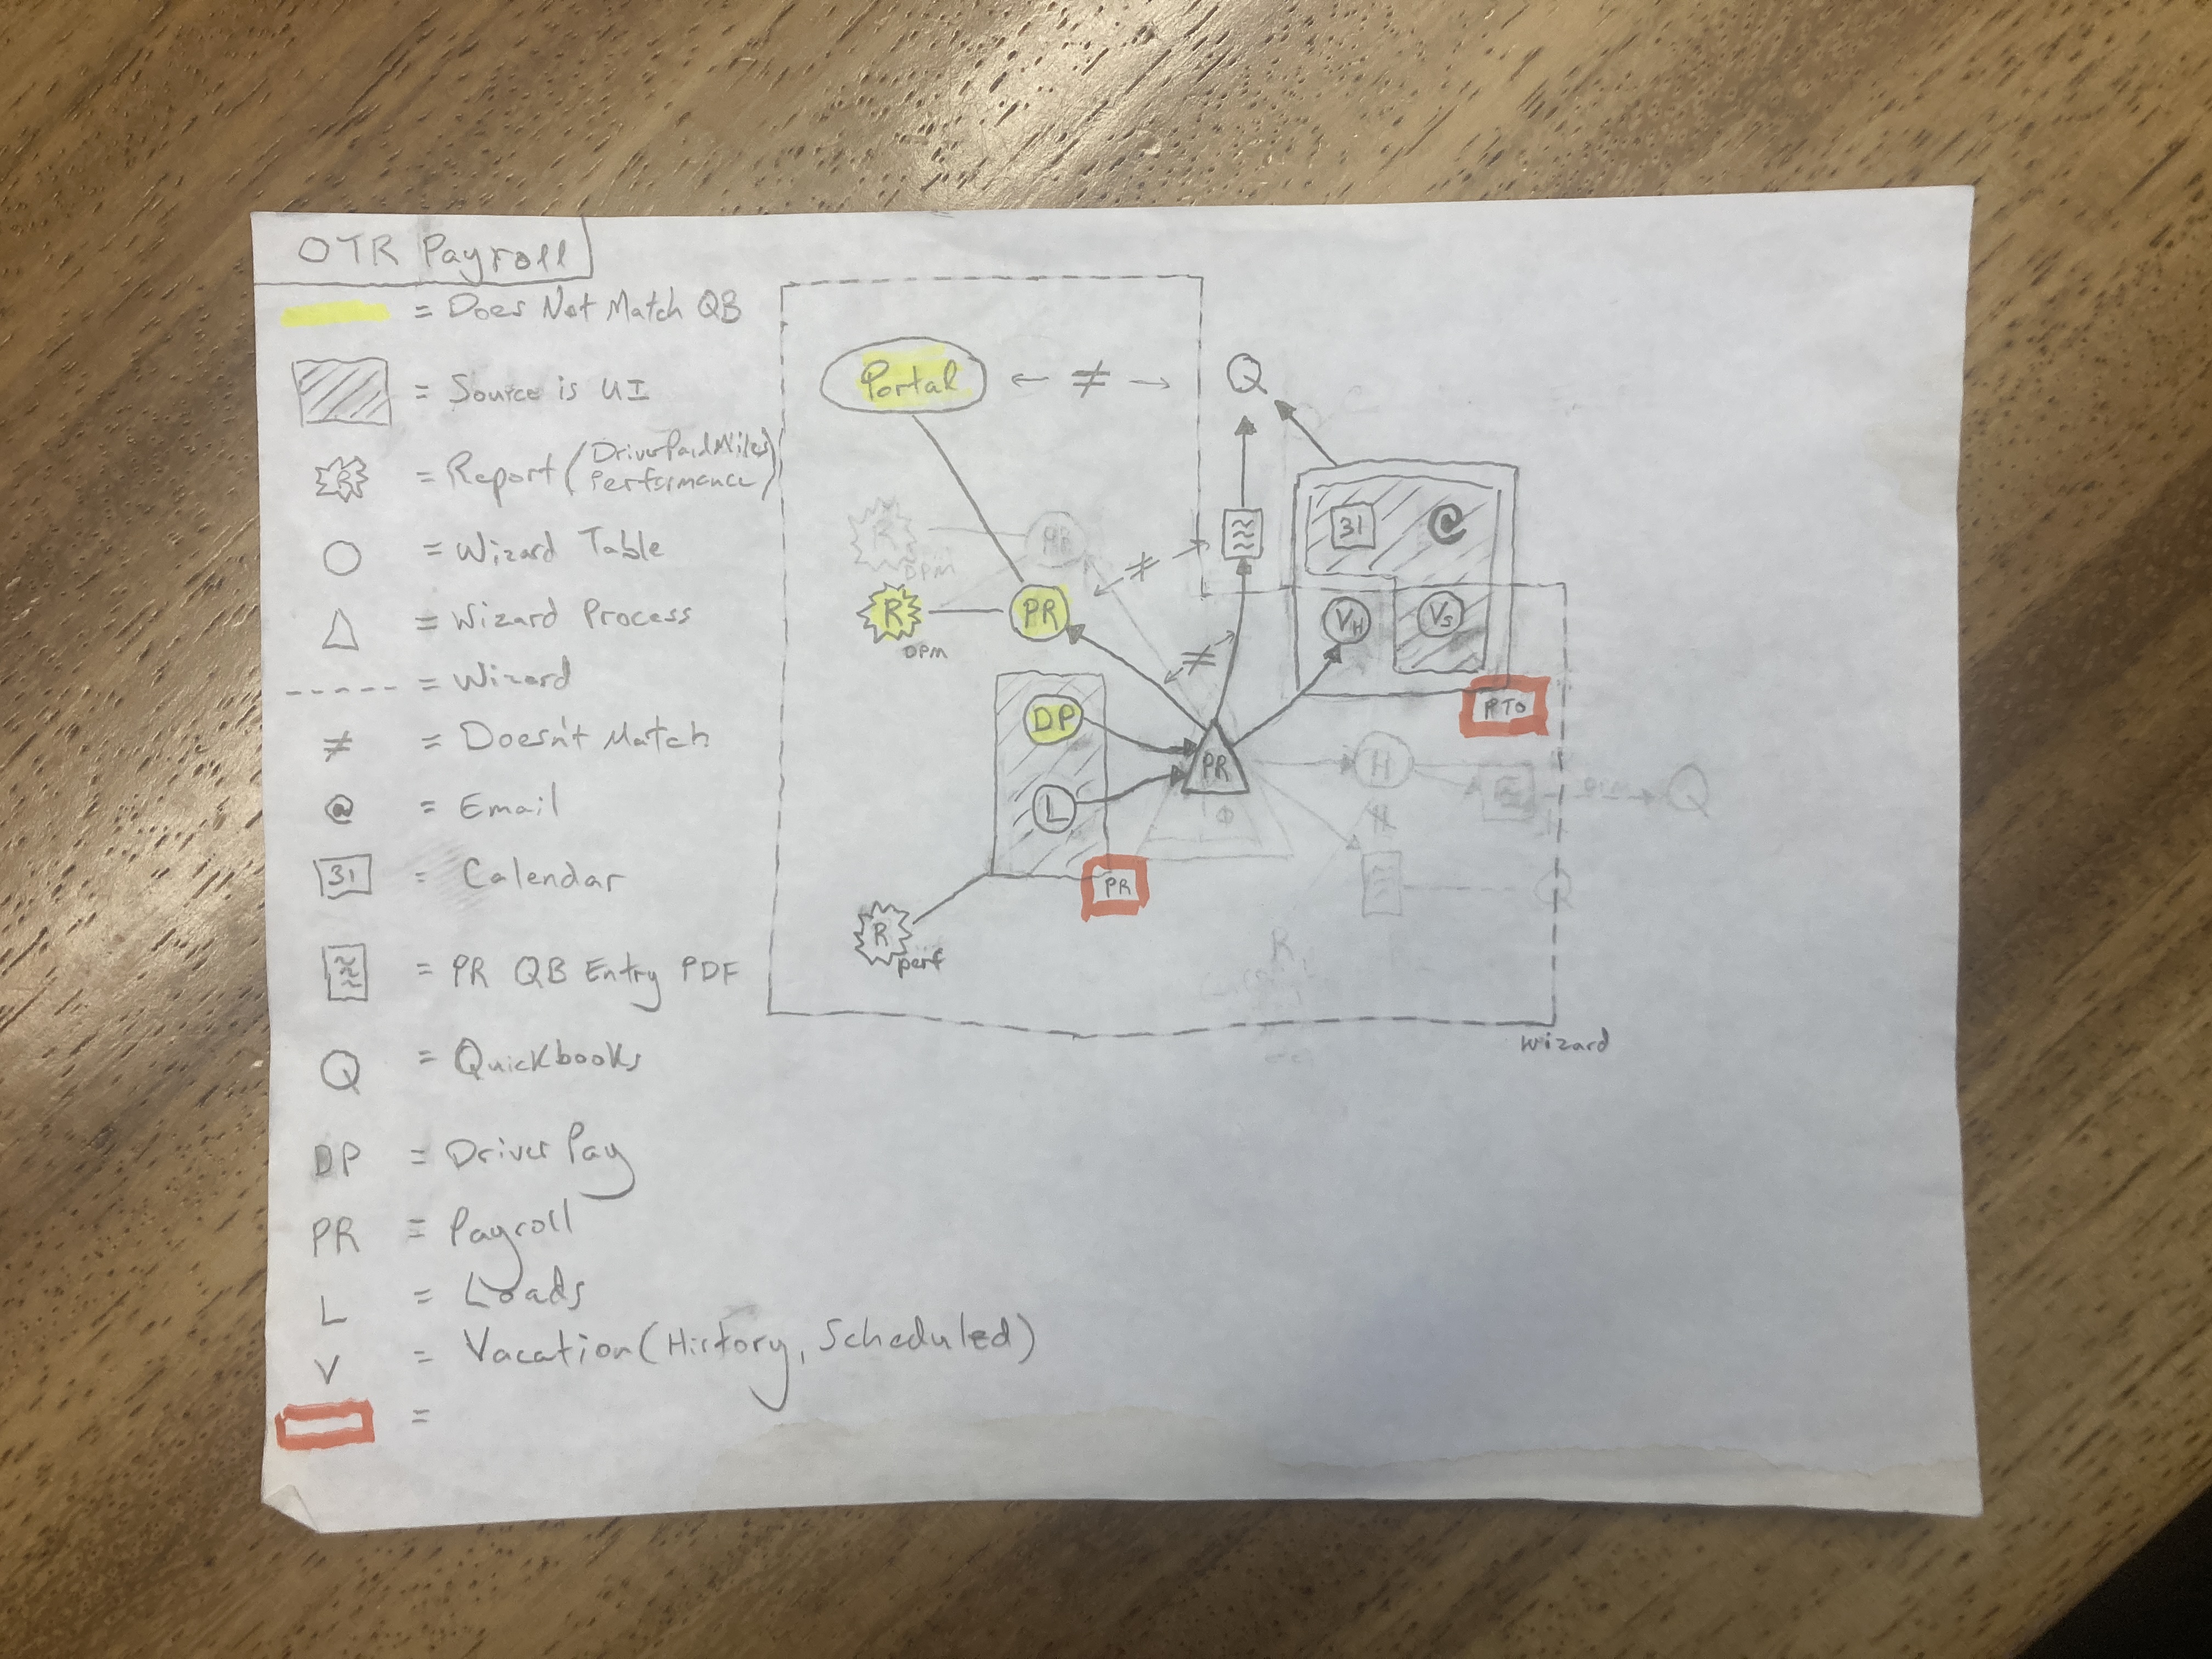 OTR Payroll
= Does Not Match QB
= Source is UI
R = Report (DriverPaidMiles, Performance)
= Wizard Table
= Wizard Process
= Wizard
≠ = Doesn't Match
@ = Email
31 = Calendar
= PR QB Entry PDF
Q = Quickbooks
DP = Driver Pay
PR = Payroll
L = Loads
V = Vacation (History, Scheduled)
=
Portal ← ≠ → Q
31 @
R DPM
≠
R PR
DPM
VH VS
≠
PTO
DP
PR
H
Q
L
PR
R
perf
R
Wizard